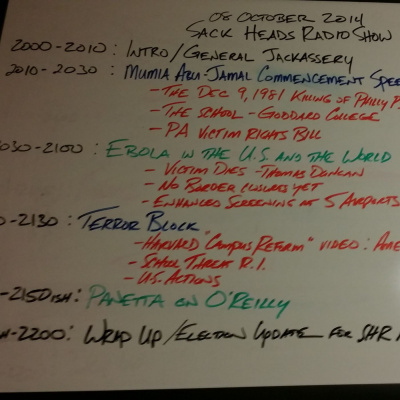 08 OCTOBER 2014
SACK HEADS RADIO SHOW
2000-2010: INTRO/GENERAL JACKASSERY
2010-2030: MUMIA ABU-JAMAL COMMENCEMENT SPEE
- THE DEC 9, 1981 KILLING OF PHILLY P
- THE SCHOOL - GODDARD COLLEGE
- PA VICTIM RIGHTS BILL
030-2100: EBOLA IN THE U.S. AND THE WORLD
- VICTIM DIES - THOMAS DUNCAN
- NO BORDER CLOSURES YET
- ENHANCED SCREENING AT 5 AIRPORTS
0-2130: TERROR BLOCK
- HARVARD "CAMPUS REFORM" VIDEO: AME
- SCHOOL THREAT R.I.
- U.S. ACTIONS
-2150ISH: PANETTA ON O'REILLY
-2200: WRAP UP/ELECTION UPDATE FOR SHR